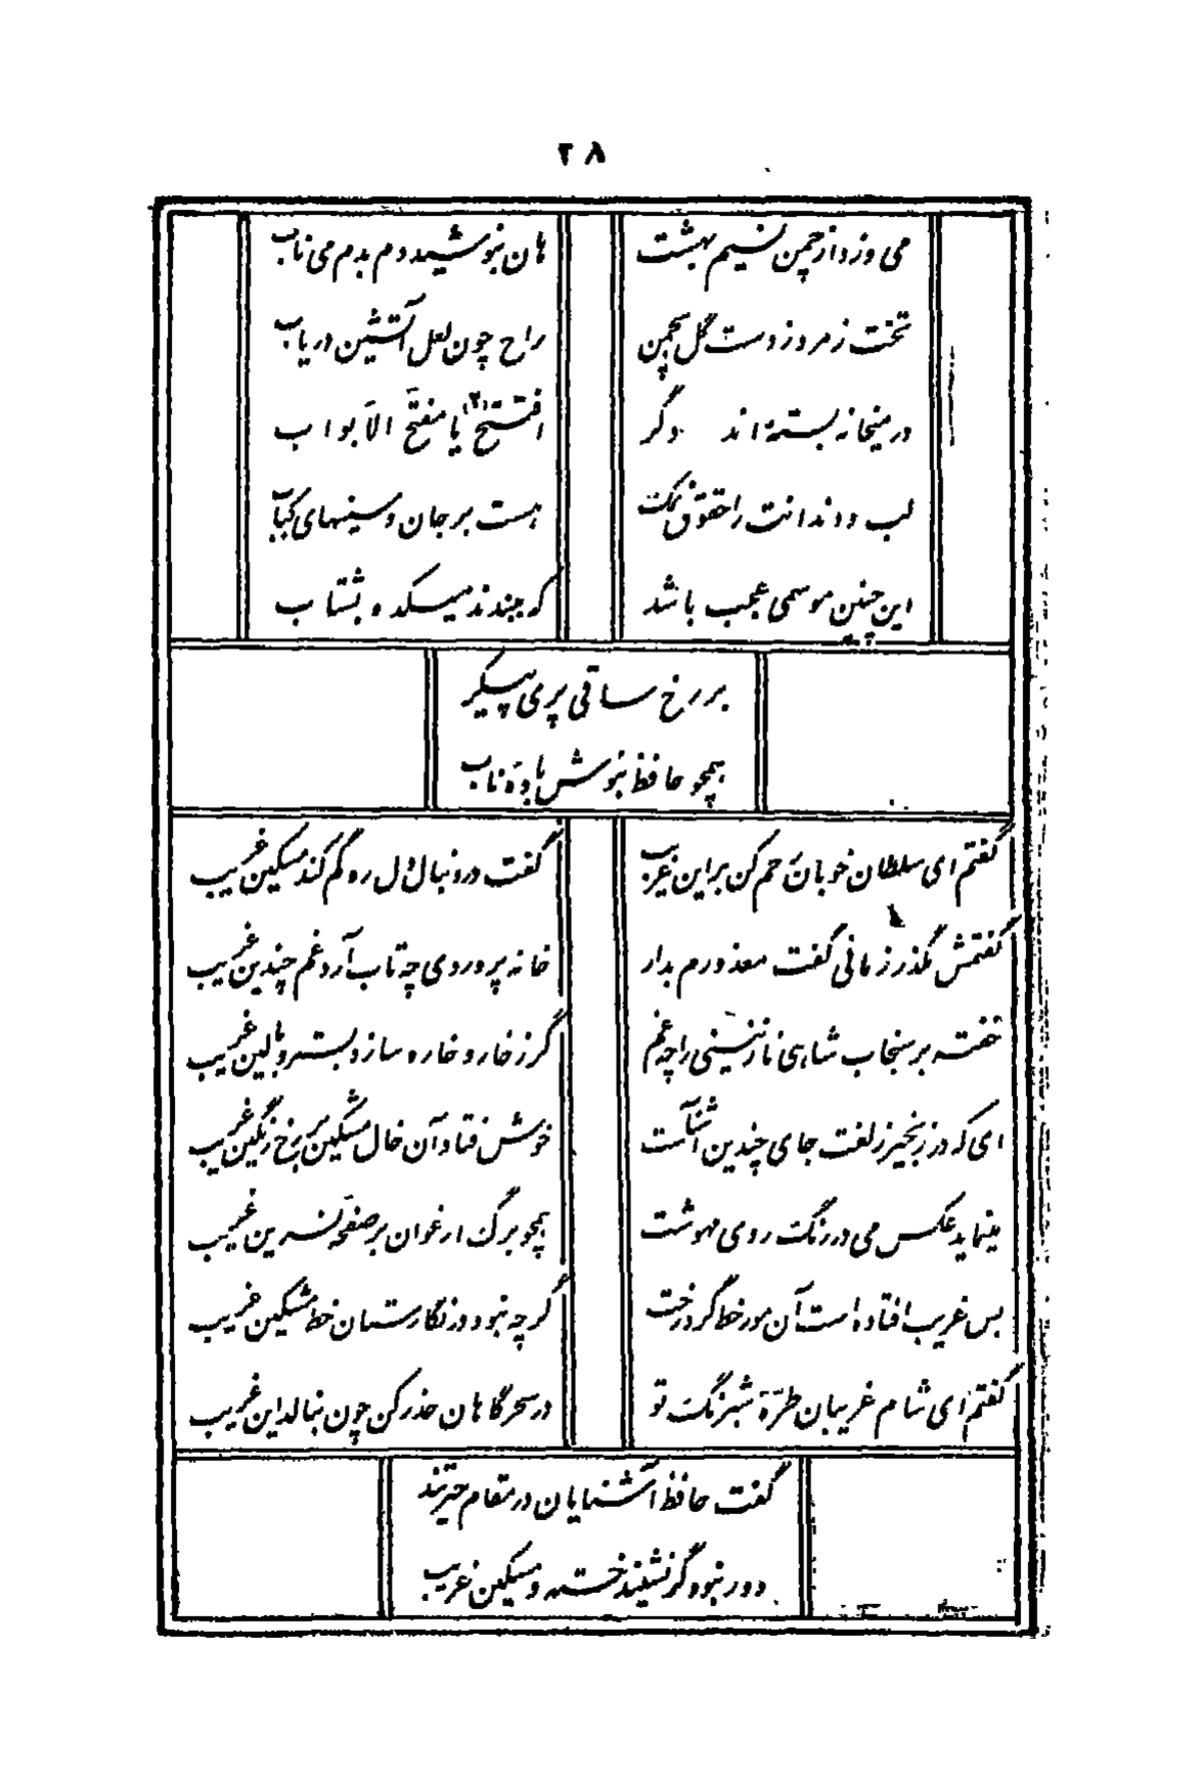 ۲۸
می وزد از چمن نسیم بهشت
هان بنوشید دم بدم می ناب
تخت زمرد زدست گل بچمن
راح چون لعل آتشین دریاب
در میخانه بسته‌اند دگر
افتتح (۲) یا مفتح الابواب
لب و دندانت را حقوق نمک
هست بر جان و سینهای کباب
این چنین موسمی عجب باشد
که ببندند میکده بشتاب
بر رخ ساقی پری پیکر
همچو حافظ بنوش باده ناب
گفتم ای سلطان خوبان رحم کن بر این غریب
گفت در دنبال دل ره گم کند مسکین غریب
گفتمش مگذر زمانی گفت معذورم بدار
خانه پروردی چه تاب آرد غم چندین غریب
خفته بر سنجاب شاهی نازنینی را چه غم
گر ز خار و خاره سازد بستر و بالین غریب
ای که در زنجیر زلفت جای چندین آشناست
خوش فتاد آن خال مشکین بر رخ رنگین غریب
مینماید عکس می در رنگ روی مهوشت
همچو برگ ارغوان بر صفحه نسرین غریب
بس غریب افتاده است آن مور خط گرد رخت
گرچه نبود در نگارستان خط مشکین غریب
گفتم ای شام غریبان طره شبرنگ تو
در سحرگاهان حذر کن چون بنالد این غریب
گفت حافظ آشنایان در مقام حیرتند
دور نبود گر نشیند خسته و مسکین غریب